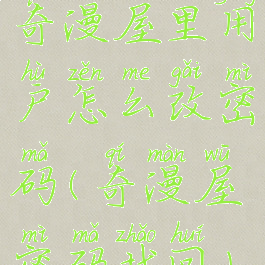 奇漫屋里用
hù zěn me gǎi mì
户怎么改密
mǎ qí màn wū
码(奇漫屋
mì mǎ zhǎo huí
密码找回)